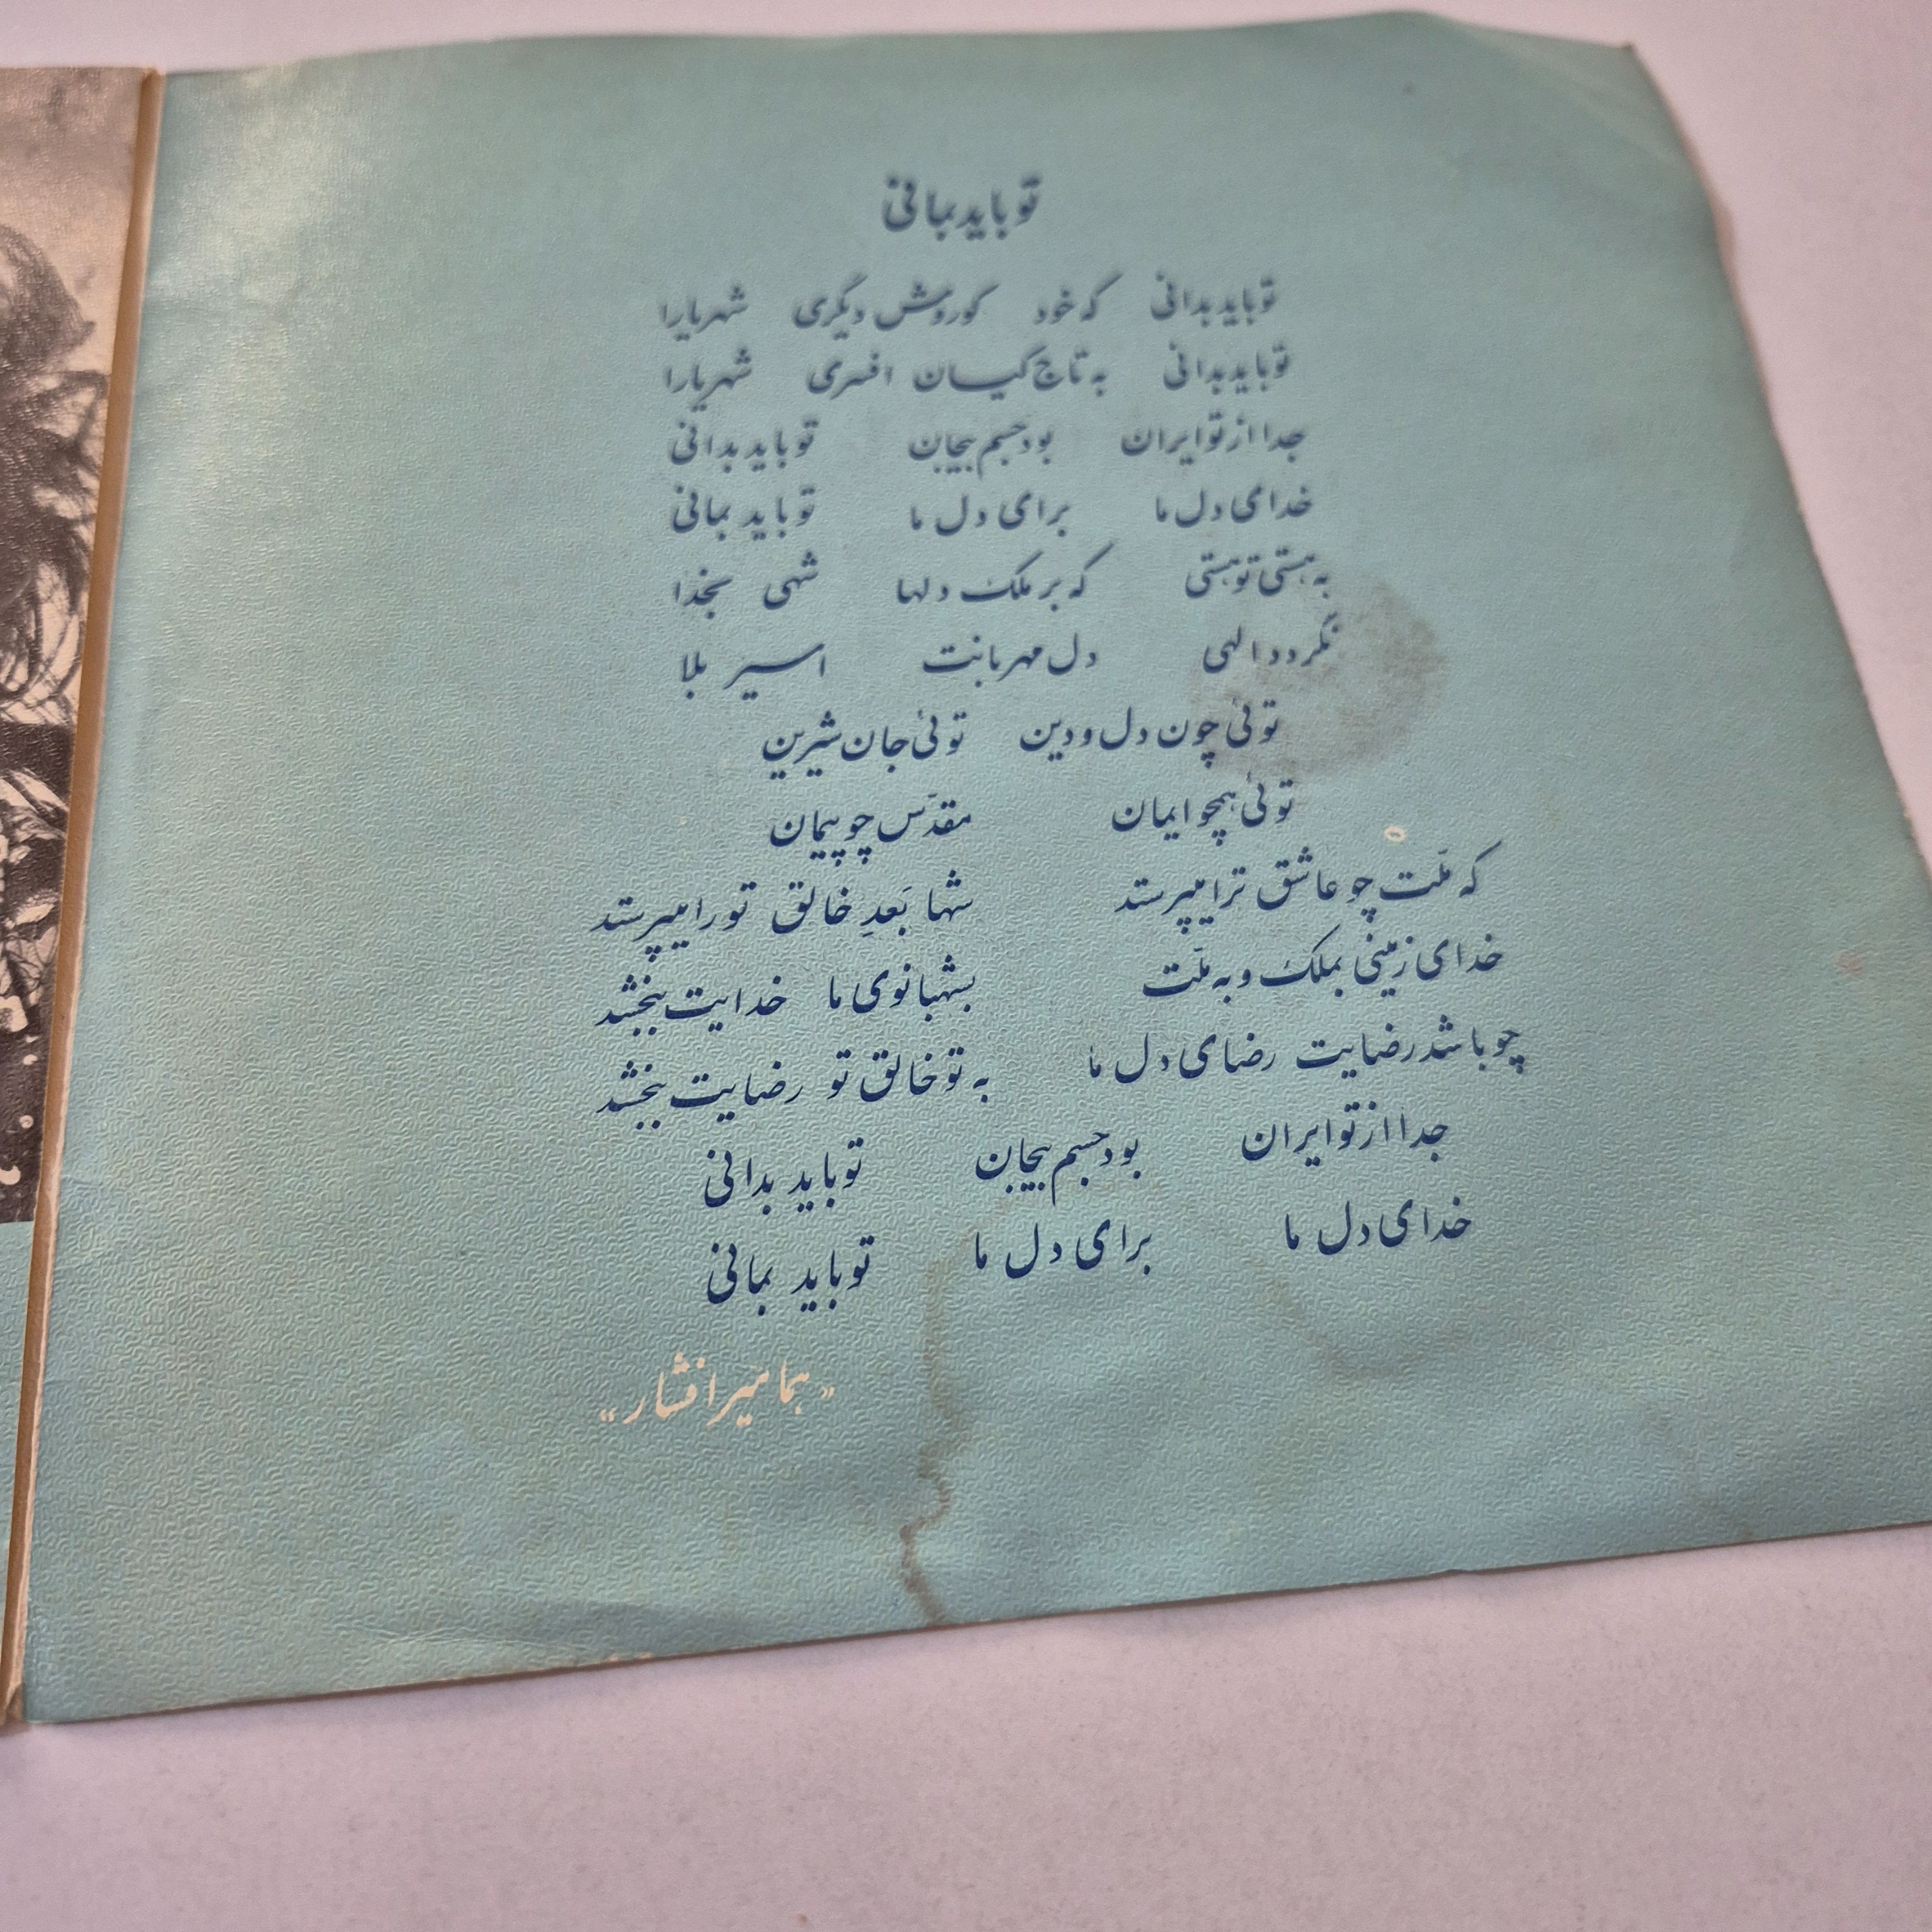 تو باید بمانی
تو باید بدانی که خود کوروش دیگری شهریارا
تو باید بدانی به تاج کیان افسری شهریارا
جدا از تو ایران بود جسم بیجان تو باید بدانی
خدای دل ما برای دل ما تو باید بمانی
به هستی تو هستی که بر ملک دلها شهی بخدا
نگردد الهی دل مهربانت اسیر بلا
توئی چون دل و دین توئی جان شیرین
توئی همچو ایمان مقدّس چو پیمان
که ملّت چو عاشق ترا میپرستد شها بَعدِ خالق تو را میپرستد
خدای زمینی بملک و به ملّت بشهبانوی ما خدایت ببخشد
چو باشد رضایت رضای دل ما به تو خالق تو رضایت ببخشد
جدا از تو ایران بود جسم بیجان تو باید بدانی
خدای دل ما برای دل ما تو باید بمانی
«هما میرافشار»